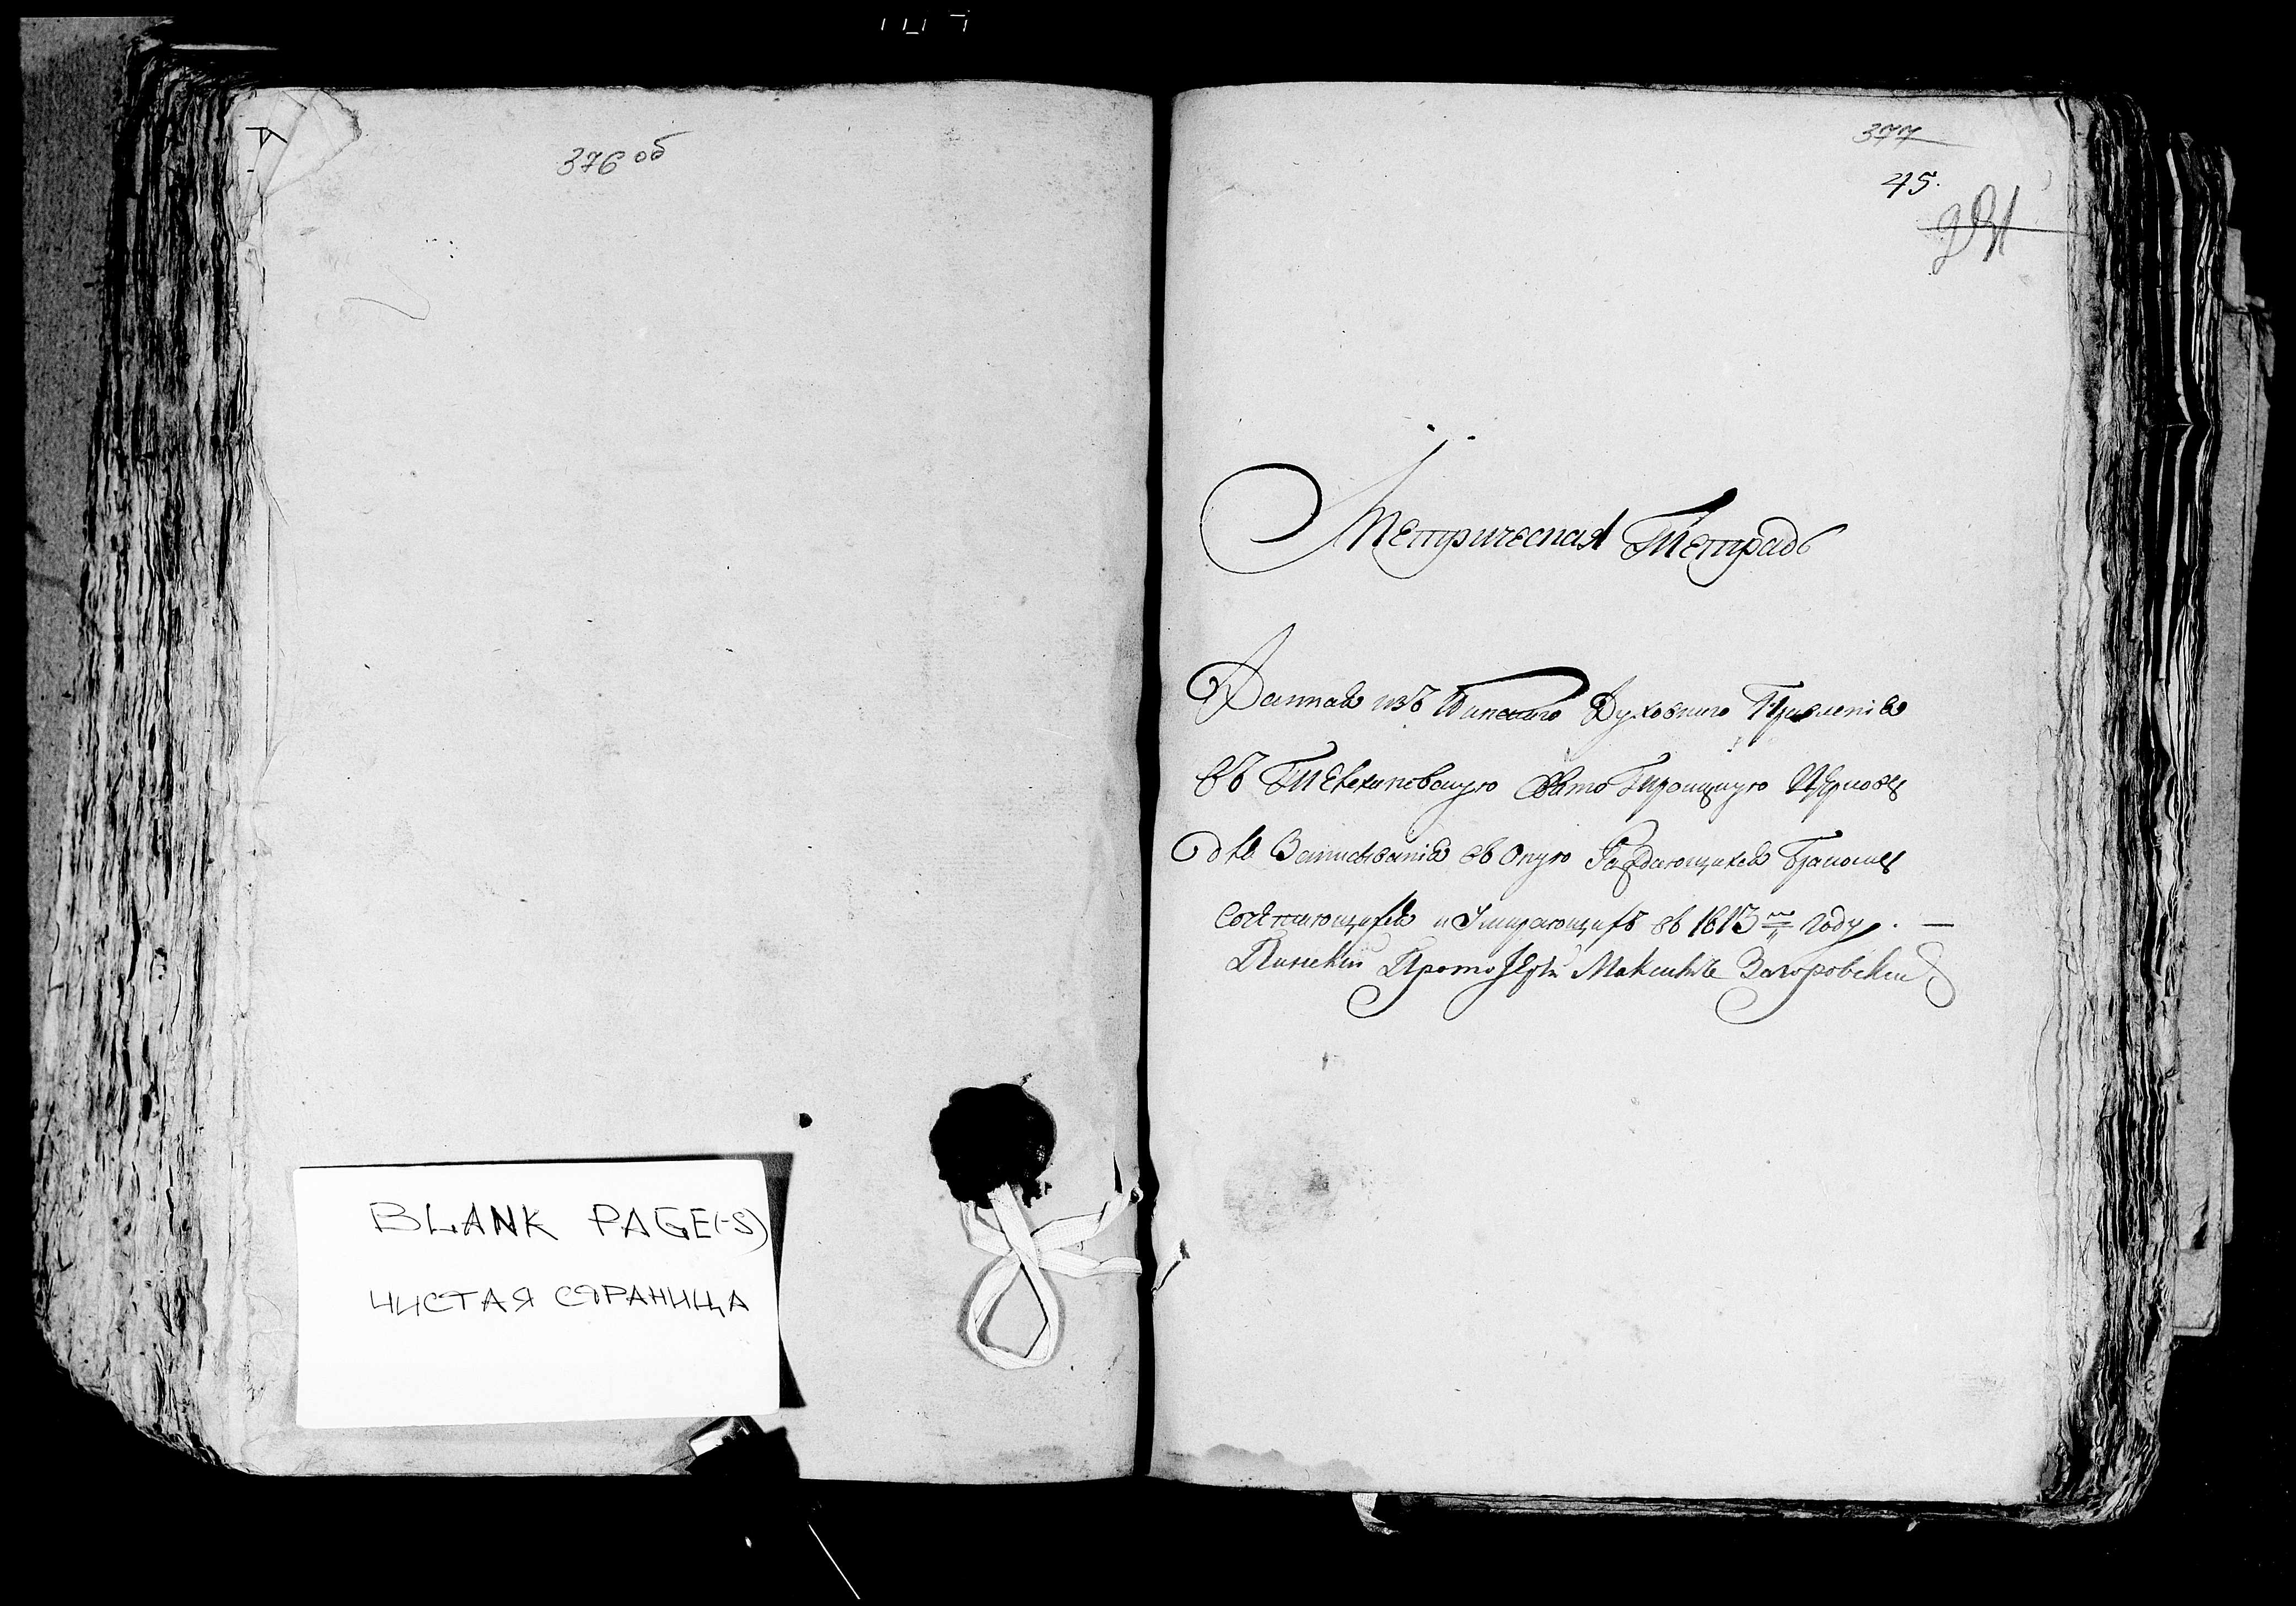 376 об
BLANK PAGE(-S)
ЧИСТАЯ СТРАНИЦА
377
45.
Метрическая Тетрадь
Данная изъ Пинскаго Духовного Правленія
въ Свято Троицкую Церковь
для Записыванія въ оную Раждающихся Бракомъ
Сочетающихся и Умирающихъ въ 1813 м году. —
Пинскій Протоіерей Максимъ Загоровскій